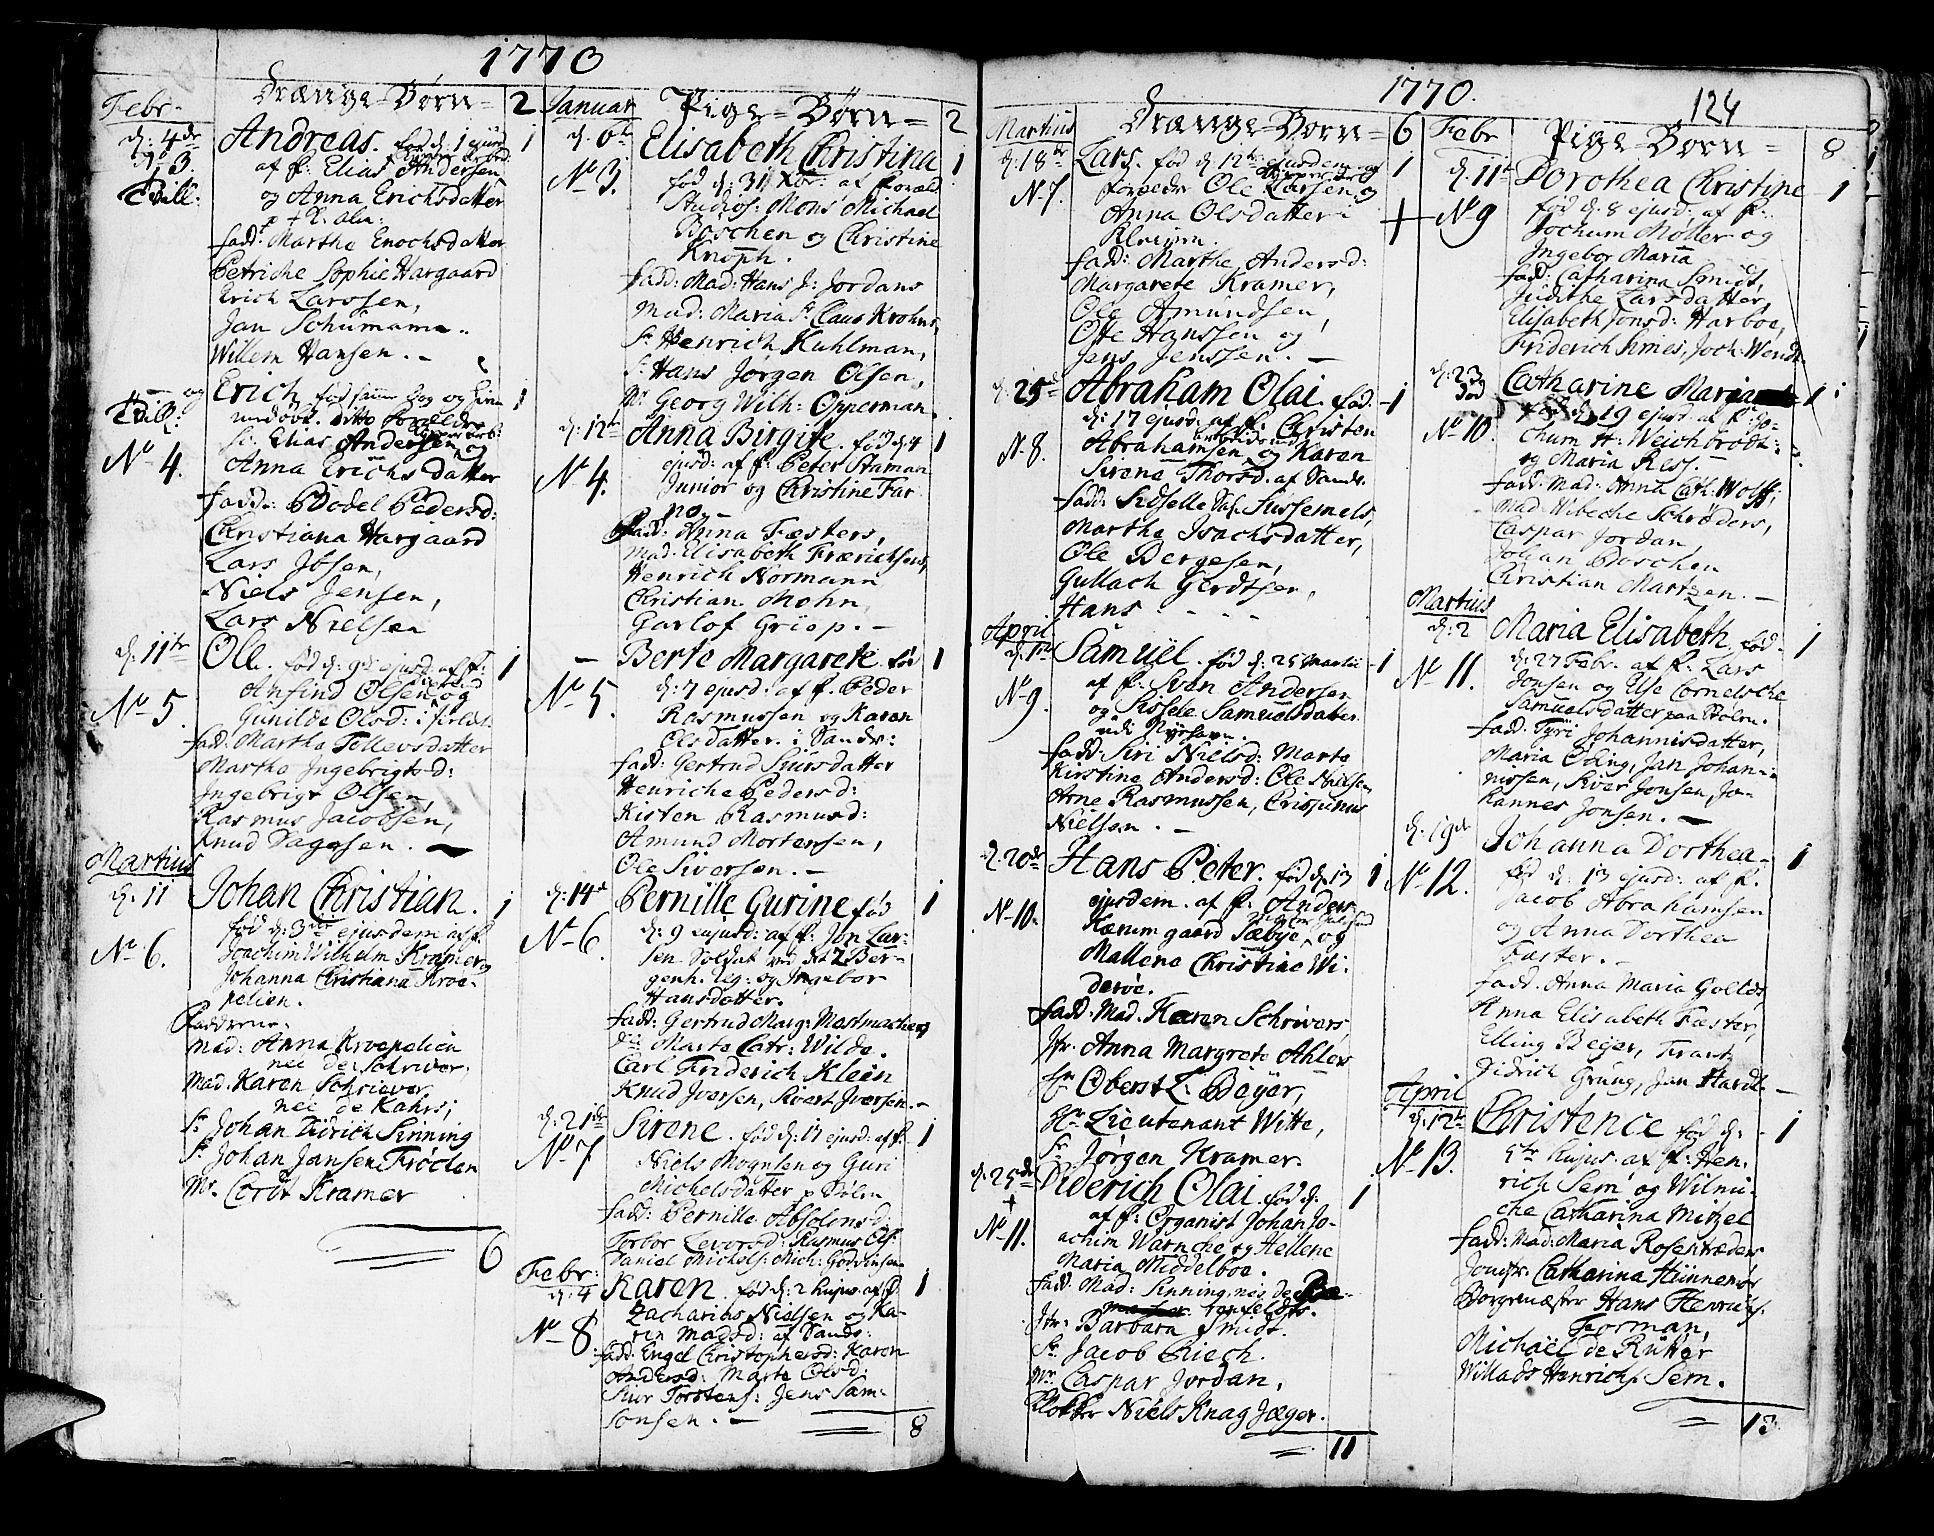 1770
Febr.
Drænge-Børn 2
d: 4de
No 3.
Tvill:
Andreas. fød d: 1 ejusd 1
af f: Elias Andersen
og Anna Erichsdatter
fadd: Marthe Enochsdatter
Petriche Sophie Hargaard
Erich Larssen,
Jan Schumann..
Willem Hansen. -
og Tvill:
No 4.
Erich, fød samme Dag og hiem 1
medøbt. ditto Forældre
Elias Andersen og
Anna Erichsdatter
fadd: Bodel Pedersd:
Christiana Hargaard
Lars Jbsen,
Niels Jensen,
Lars Nielsen
d: 11te
No 5.
Ole. fød d: 9de ejusd: af f: 1
Anfind Olsen og
Gunilde Olsd:
fadd: Martha Tollevsdatter
Martha Ingebrigtsd:
Ingebrigt Olsen,
Rasmus Jacobsen,
Knud Dagesen. -
Martius
d: 11
No 6.
Johan Christian. 1
fød d: 3die ejusdem af f:
Joachim Wilhelm Kramer og
Johanna Christiana Kroe-
pelien.
Faddrene.
Mad: Anna Kroepelien
nee de Schriver.
Mad. Karen Schriever
nee de Kahrs;
Sr. Johan Didrich Sinning
Sr. Johan Jansen Frøchen
Mr. Cordt Kramer
6
Januar
Pige-Børn 2
d: 6te
No 3.
Elisabeth Christina 1
fød d: 31 Xbr: af Foræld
Studios: Mons Michael
Boschen og Christine
Knoph.
fadd: Mad: Hans J: Jordans
Mad: Maria Sr. Claus Krohns,
Sr. Henrich Kuhlman,
Sr. Hans Jørgen Olsen,
Mr. Georg Wilh: Opperman.
d: 12te
No 4.
Anna Birgite. fød d: 4 1
ejusd: af f: Peter Staman
Junior og Christine Far
no. -
Fadd: Anna Fæsters,
Mad. Elisabeth Frærichsens,
Henrich Normann
Christian Mohn,
Garlof Griop. -
-
No 5.
Berte Margarete fød 1
d: 7 ejusd: af f. Peder
Rasmussen og Karen
Olsdatter. i Sandv:
fadd: Gertrud Siursdatter
Henriche Pedersd:
Kisten Rasmusd:
Amund Mortensen,
Ole Siversen. -
d: 14de
No 6.
Pernille Gurine fød 1
d: 9 ejusd: af f: Jon Lar-
sen Soldat ved det 2 Ber-
genh. Reg: og Ingebor
Hansdatter.
fadd: Gertrud Marg: Mastmachers
Marte Catr: Wilde.
Carl Friderich Klein
Knud Iversen, Sivert Iversen. -
d: 21de
No 7
Sirene. fød d: 17 ejusd: af f. 1
Niels Mognsen og Guri
Michelsdatter p Bølen
fadd: Pernille Absolonsd:
Torbor Zeversd: Rasmus Ols:
Daniel Michels: Mich: Godvinsen
Febr:
d: 4
No 8
Karen. fød d: 2 hujus af f. 1
Zacharias Nielsen og Ka-
ren Madsd: af Sandv:
fadd: Engel Christophersd: Karen
Andersd: Marte Olsd:
Siur Torstens: Jens Sam-
sonsen. -
8
1770.
124
Martius
Drænge-Børn 6
d: 18de
N. 7.
Lars. fød d: 12te ejusdem 1
forældr Ole Larsen og
Anna Olsdatter i
Klevjen.
fadd: Marthe Andersd:
Margarete Kramer,
Ole Amundsen,
Offe Hanssen og
Jens Jenssen. -
d: 25de
N. 8.
Abraham Olai. fød. 1
d: 17 ejusd: af f. Christen
Abrahamsen og Karen
Sirena Thorsd. af Sandv.
fadd: Sidselle Sussemels,
Marthe Isachsdatter,
Ole Bergesen,
Gullach Gerdtsen,
Hans - - -
April
d: 1te
No 9.
Samuel. fød d: 25 Martii 1
af f: Sven Andersen
og Sissele Samuelsdatter
fadd: Siri Nielsd: Marte
Kirstine Andersd: Ole Nielsen
Arne Rasmussen, Crispinus
Nielsen. -
d. 20de
No 10.
Hans Peter. fød d. 13 1
ejusdem. af f. Anders
Kæmmgaard Sæbye, og
Mallena Christine Wi-
derøe.
fadd: Mad. Karen Schrivers,
Jfr. Anna Margrete Ahlers
Hr Oberst L. Beyer,
Hr. Lieutenant Witte,
Sr. Jørgen Kramer.
d: 25de
+
No 11.
Diderich Olai. fød d. 1
af f: Organist Johan Jo-
achim Warnche og Hellene
Maria Middelboe.
fadd. Mad: Sinning, nee de
Jfr: Barbara Smidt.
Sr. Jacob Riech.
Mr. Caspar Jordan,
Klokker Niels Knag Jæger.
11
Febr
Pige-Børn 8
d: 11te
+ No 9
Dorothea Christine 1
fød d: 8 ejusd: af f.
Jochum Møller og
Ingebor Maria
fadd: Catharina Smidt,
Judithe Larsdatter,
Elisabeth Jonsd: Harboe,
Friderich Simes, Joch: Wendt
d: 23
No 10.
Catharine Maria 1
fød d: 19 ejusd. af f. Jo-
chum H: Weichbrodt
og Maria Ress.
fadd: Mad: Anna Cath: Wolff;
Mad: Wibeche Schrøders,
Caspar Jordan,
Johan Boschen
Christian Martzen. -
Martius
d: 2
No 11.
Maria Elisabeth. fød 1
d: 27 Febr. af f. Lars
Jonsen og Else Cornelsche
Samuelsdatter paa Stølen.
fadd: Tyri Johannisdatter,
Maria Øding, Jan Johan-
nissen, Siver Jonsen, Jo-
hannes Jonsen. -
d: 19de
No 12.
Johanna Dorthea 1
fød d: 13 ejusd: af f.
Jacob Abrahamsen
og Anna Dorthea
Faster. -
fadd. Anna Maria Golds,
Anna Elisabeth Fæster,
Elling Beyer, Frantz
Didrich Grüng, Jan Hardt -
April
d: 12te
No 13.
Christence fød d: 1
5te hujus af f: Hen-
rich Sem og Wilmi-
che Catharina Metzel
fadd: Mad: Maria Rosentræders
Jomfr: Catharina Hünnemør
Borgemester Hans Henrich
Forman,
Michael de Rutter
Willads Henrichs. Sem.
13